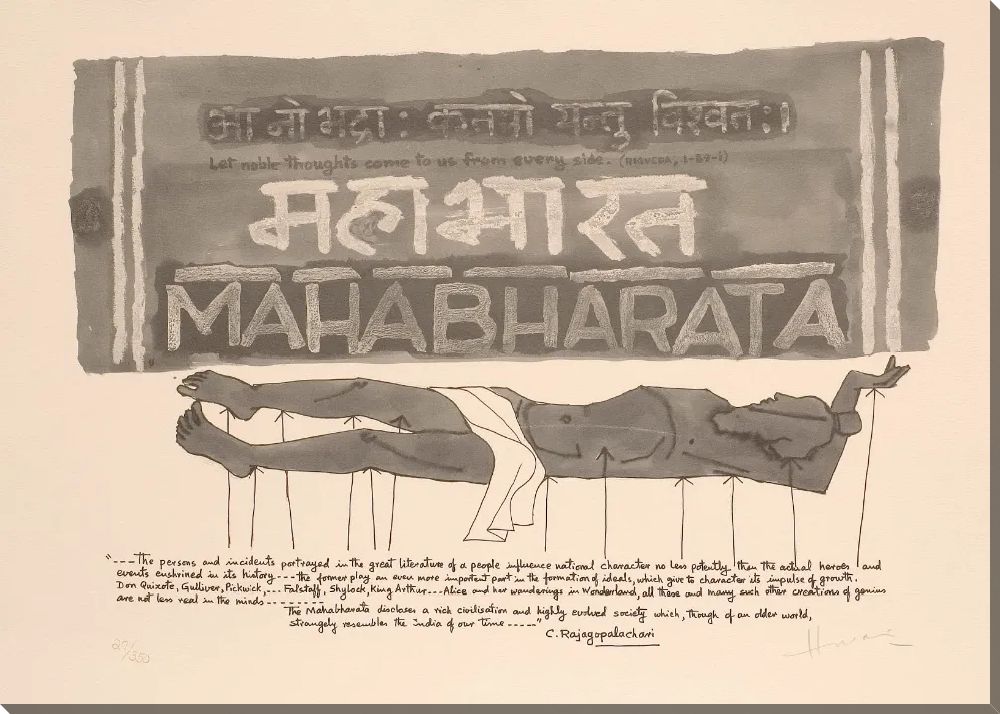 आ नो भद्रा: क्रतवो यन्तु विश्वत:।
Let noble thoughts come to us from every side. (RIGVEDA, 1-89-1)
महाभारत
MAHABHARATA
"---The persons and incidents portrayed in the great literature of a people influence national character no less potently than the actual heroes and
events enshrined in its history---the former play an even more important part in the formation of ideals, which give to character its impulse of growth.
Don Quixote, Gulliver, Pickwick,--- Falstaff, Shylock, King Arthur---Alice and her wanderings in Wonderland, all these and many such other creations of genius
are not less real in the minds----------
The Mahabharata discloses a rich civilisation and highly evolved society which, though of an older world,
strangely resembles the india of our time -----"
C. Rajagopalachari
/350